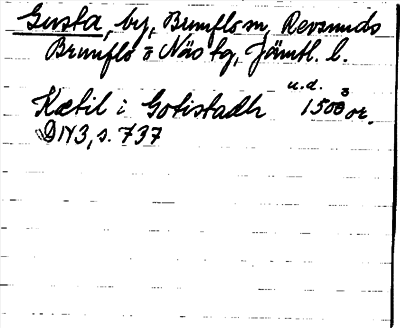 Gusta, by, Brunflo sn, Revsunds
Brunflo o Näs tg, Jämtl. l.
u.d.
Kætil i Gotistadh 1500 or.
DN 3, s. 737